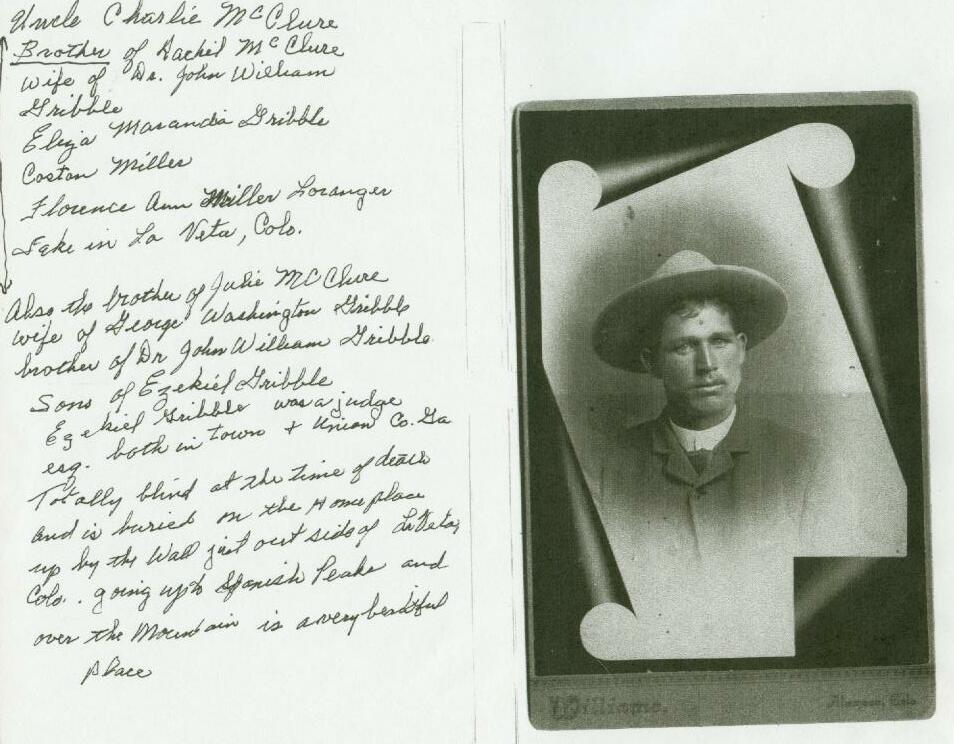 Uncle Charlie McClure
Brother of Rachel McClure
wife of Dr. John William
Gribble
Eliza Maranda Gribble
Costan Miller
Florence Ann Miller Loranger
Take in La Veta, Colo.
Also the brother of Julie McClure
wife of George Washington Gribble
brother of Dr John William Gribble
Sons of Ezekiel Gribble
Ezekiel Gribble was a judge
esq. both in town + Union Co. Ga
Totally blind at the time of death
and is buried on the Home place
up by the Wall just out side of LaVeta,
Colo.. going up to Spanish Peaks and
over the Mountain is a very beautiful
place
Williams. Alamosa, Colo